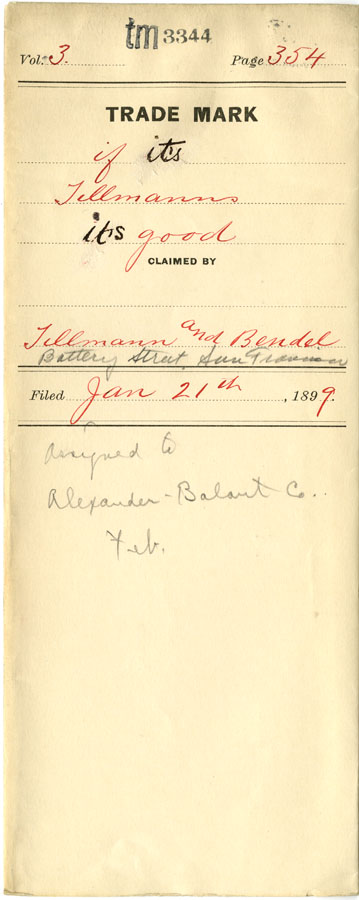 tm 3344
Vol. 3. Page 354
TRADE MARK
if it's
Tillmanns
it's good
CLAIMED BY
Tillmann and Bendel
Battery Street, San Francisco
Filed Jan 21th, 1899.
Assigned to
Alexander-Balart Co.
Feb.